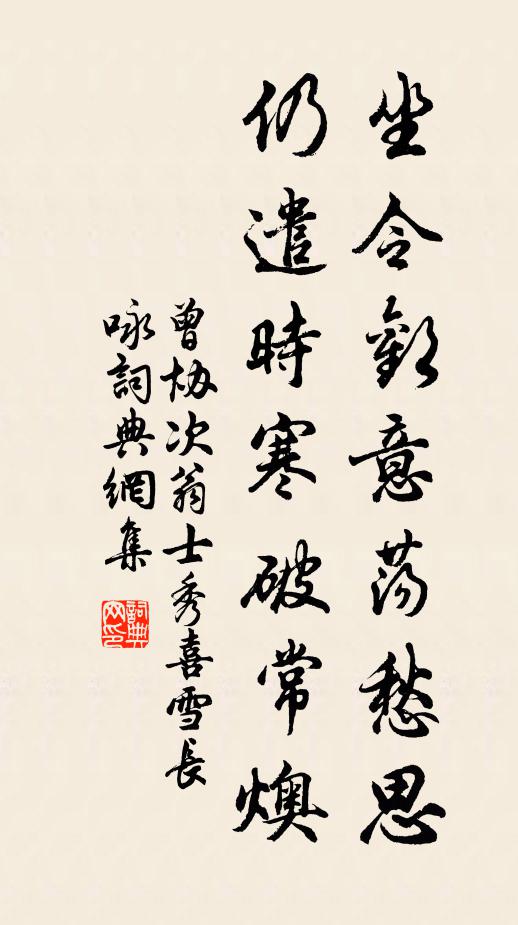 坐令歡意蕩愁思
仍遣時寒破常燠
曾協次翁士秀喜雪長
咏詞典網集
詞典网印